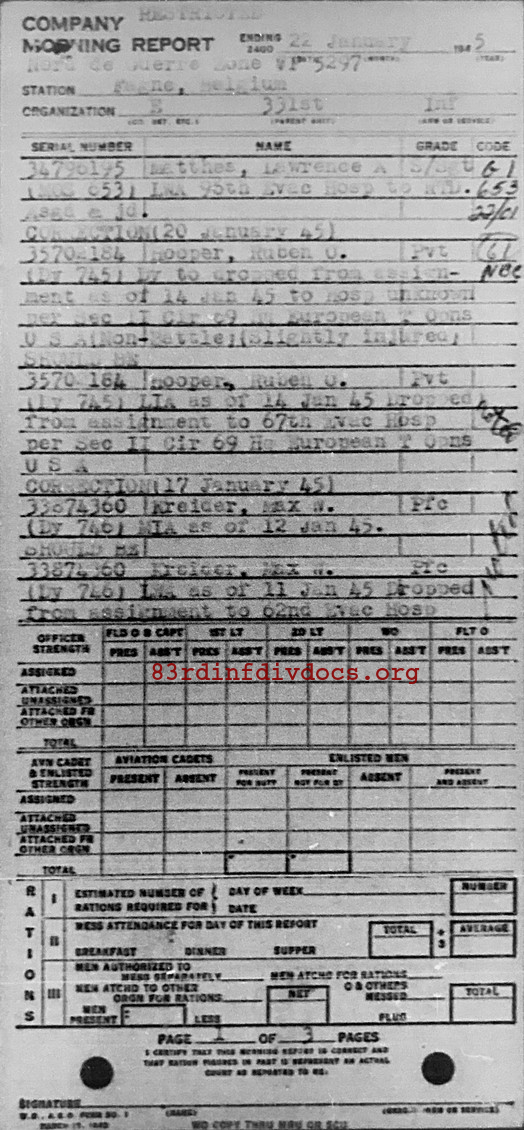 RESTRICTED
COMPANY
MORNING REPORT ENDING 2400 22 January 1945
Nord de Guerre Zone VP 5297
STATION Fagne, Belgium
ORGANIZATION E 331st Inf
(CO. DET. ETC.) (PARENT UNIT) (ARM OR SERVICE)
SERIAL NUMBER NAME GRADE CODE
34796195 Matthes, Lawrence A S/Sgt G1
(MOS 653) LWA 95th Evac Hosp to RTD. 653
Asgd & jd. 22/01
CORRECTION(20 January 45)
35702184 Hooper, Ruben O. Pvt (61)
(Dy 745) Dy to dropped from assign- NBC
ment as of 14 Jan 45 to Hosp unknown
per Sec II Cir 69 Hq European T Opns
U S A(Non-Battle)(Slightly injured)
SHOULD BE
35702184 Hooper, Ruben O. Pvt
(Dy 745) LIA as of 14 Jan 45 Dropped
from assignment to 67th Evac Hosp
per Sec II Cir 69 Hq European T Opns
U S A
CORRECTION(17 January 45)
33874360 Kreider, Max W. Pfc
(Dy 746) MIA as of 12 Jan 45.
SHOULD BE
33874360 Kreider, Max W. Pfc
(Dy 746) LWA as of 11 Jan 45 Dropped
from assignment to 62nd Evac Hosp
OFFICER STRENGTH FLD O & CAPT 1ST LT 2D LT WO FLT O
PRES ABS'T PRES ABS'T PRES ABS'T PRES ABS'T PRES ABS'T
83rdinfdivdocs.org
ASSIGNED
ATTACHED UNASSIGNED
ATTACHED FR OTHER ORGN
TOTAL
AVN CADET & ENLISTED STRENGTH AVIATION CADETS ENLISTED MEN
PRESENT ABSENT PRESENT FOR DUTY PRESENT NOT FOR DY ABSENT PRESENT AND ABSENT
ASSIGNED
ATTACHED UNASSIGNED
ATTACHED FR OTHER ORGN
TOTAL
RATIONS
I ESTIMATED NUMBER OF RATIONS REQUIRED FOR DAY OF WEEK DATE NUMBER
II MESS ATTENDANCE FOR DAY OF THIS REPORT TOTAL ÷3 AVERAGE
BREAKFAST DINNER SUPPER
III MEN AUTHORIZED TO MESS SEPARATELY MEN ATCHD FOR RATIONS
MEN ATCHD TO OTHER ORGN FOR RATIONS NET O & OTHERS MESSED TOTAL
MEN PRESENT LESS PLUS
PAGE 1 OF 3 PAGES
I CERTIFY THAT THIS MORNING REPORT IS CORRECT AND
THAT RATION FIGURES IN PART III REPRESENT AN ACTUAL
COUNT AS REPORTED TO ME:
SIGNATURE
W.D., A.G.O. FORM NO. 1 (NAME) (GRADE) (ARM OR SERVICE)